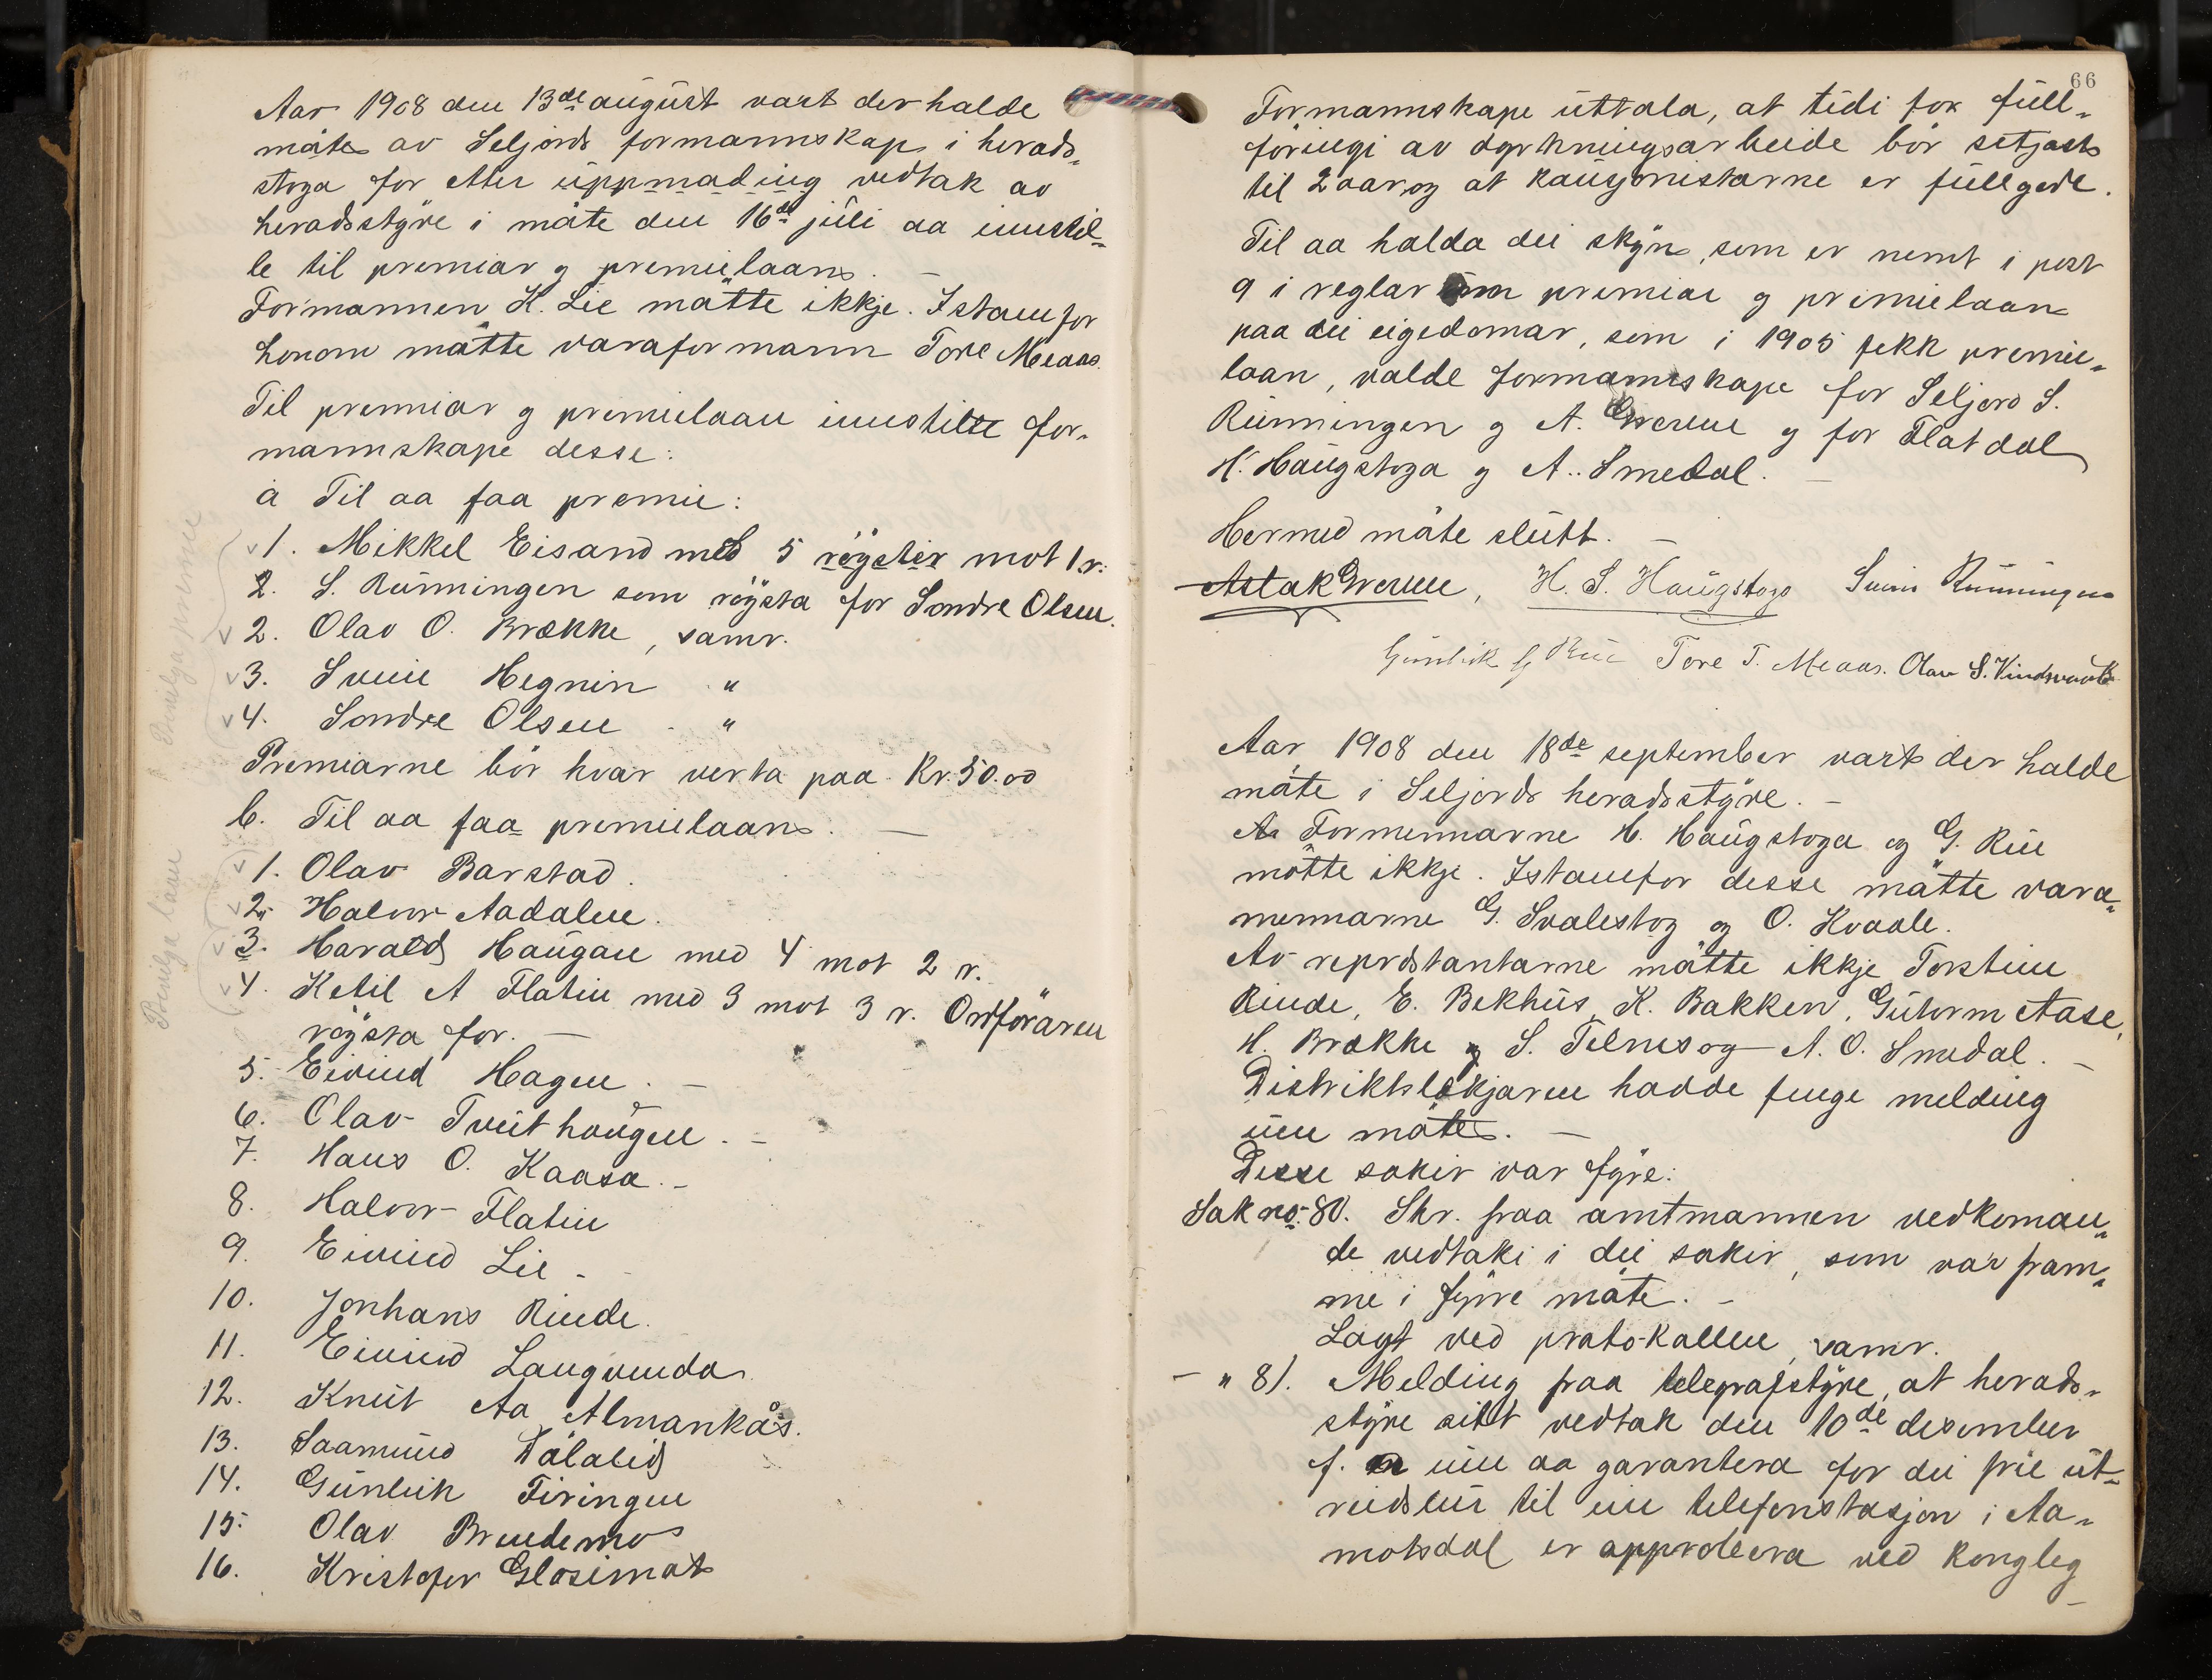 Aar 1908 den 13de august vart der halde
møte av Seljords formannskap i herads-
stoga for etter uppmading vedtak av
heradsstyre i møte den 16de juli aa innstil-
le til premiar og premielaan. —
Formannen K. Lie møtte ikkje. Istaden for
honom møtte varaformann Tore Meaas.
Til premiar og premielaan innstilte for-
mannskape desse:
a Til aa faa premie:
1. Mikkel Eisand med 5 røyster mot 1 r.
2. S. Rünningen som røysta for Sondre Olsen.
2. Olav O. Brække, samr.
3. Svein Hegnin "
4. Sondre Olsen "
Premiarne bør hvar verta paa Kr. 50.00
b. Til aa faa premielaan. —
1. Olav Barstad.
2. Halvor Aadalen.
3. Harald Haugan med 4 mot 2 r.
4. Ketil A Flatin med 3 mot 3 r. Ordføraren
røysta for. —
5. Eivind Hagen. —
6. Olav Tveithaugen. —
7. Hans O. Kaasa. —
8. Halvor Flatin
9. Eivind Lie —
10. Jonhans Rinde.
11. Eivind Langvenda
12. Knut Aa Almankås.
13. Saamund Dålalid
14. Gunleik Tiringen
15. Olav Brendemo
16. Kristofer Glosimot
Penilga premie
Penilga laan
66
Formannskape uttala, at tidi for full-
føringi av dyrkningsarbeide bør setjast
til 2 aar og at kausjonistarne er fullgode.
Til aa halda dei skyn, som er nemt i post
9 i reglar um premiar og premielaan
paa dei eigedomar, som i 1905 fekk premie-
laan, valde formannskape for Seljord S.
Rünningen og A. Grerne og for Flatdal
H. Haugstoga og A. Smedal. —
Hermed møte slutt. —
Aslak Grerne, H. S. Haugstoga Svein Rünningen
Gunleik G Rui Tore T. Meaas. Olav S. Vindsvaatt
Aar 1908 den 18de september vart der halde
møte i Seljords heradsstyre. —
Formennarne H. Haugstoga og G. Rui
møtte ikkje. Istaden for desse møtte vara-
mennarne G. Svalestog og O. Kvaale.
Av reprdstantarne møtte ikkje Torstein
Rinde, E. Bekhus, K. Bakken, Gutorm Aase,
H. Brække og S. Telnes og A. O. Smedal. —
Distriktslækjaren hadde fenge melding
um møte. —
Desse sakir var fyre:
Sak no. 80. Skr. fraa amtmannen vedkoman-
de vedtaki i dei sakir, som var fram-
me i fyrre møte. —
Lagt ved protokallen, samr.
— " 81. Melding fraa telegrafstyre, at herads-
styre sitt vedtak den 10de desember
f. um aa garantera for dei frie ut-
reidslur til ein telefonstasjon i Aa-
motsdal er approbera ved kongleg